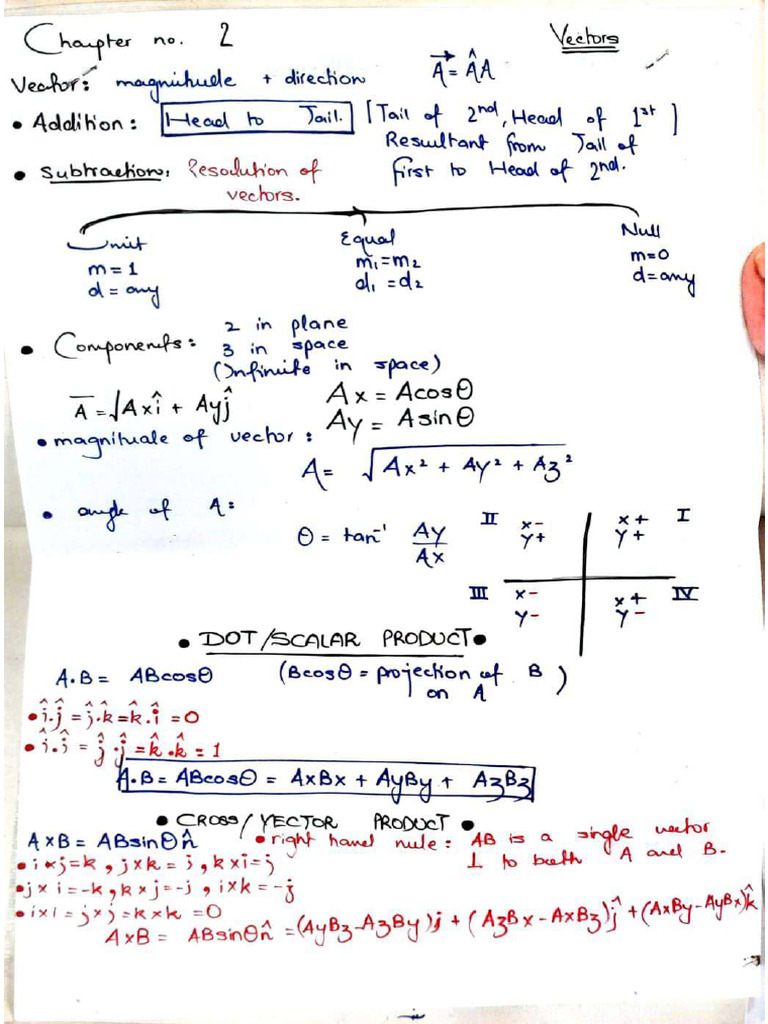 Chapter no. 2 Vectors
Vector: magnitude + direction A⃗ = Â A
• Addition: Head to Tail. [Tail of 2nd, Head of 1st]
Resultant from Tail of
first to Head of 2nd.
• Subtraction: Resolution of
vectors.
Unit Equal Null
m = 1 m₁ = m₂ m = 0
d = any d₁ = d₂ d = any
• Components: 2 in plane
3 in space
(Infinite in space)
A̅ = √Axî + Ayĵ Ax = Acosθ
Ay = Asinθ
• magnitude of vector:
A = √Ax² + Ay² + Az²
• angle of A:
θ = tan⁻¹ Ay/Ax
II x- y+ x+ y+ I
III x- y- x+ y- IV
• DOT/SCALAR PRODUCT •
A.B = ABcosθ (Bcosθ = projection of B on A)
• î.ĵ = ĵ.k̂ = k̂.î = 0
• î.î = ĵ.ĵ = k̂.k̂ = 1
A.B = ABcosθ = AxBx + AyBy + AzBz
• CROSS/VECTOR PRODUCT •
A×B = ABsinθn̂ • right hand rule: AB is a single vector
⊥ to both A and B.
• i×j=k, j×k=i, k×i=j
• j×i=-k, k×j=-i, i×k=-j
• i×i=j×j=k×k=0
A×B = ABsinθn̂ = (AyBz-AzBy)i + (AzBx-AxBz)ĵ + (AxBy-AyBx)k̂